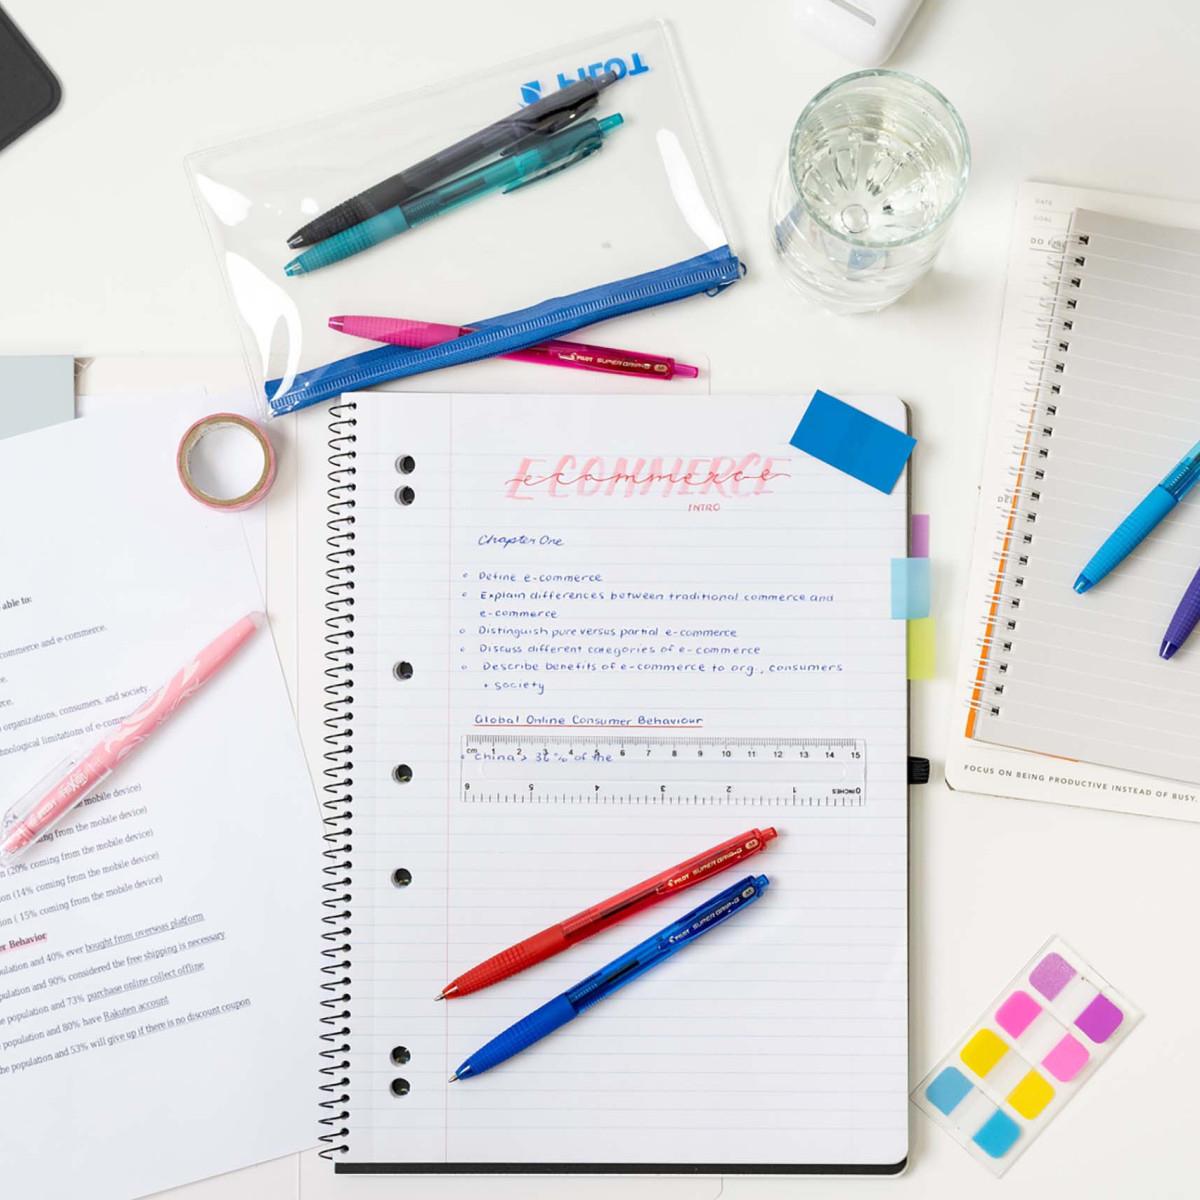 PILOT
PILOT SUPER GRIP-G M
DATE
GOAL
ECOMMERCE
ecommerce
INTRO
Chapter One
Define e-commerce
Explain differences between traditional commerce and
e-commerce
Distinguish pure versus partial e-commerce
Discuss different categories of e-commerce
Describe benefits of e-commerce to org., consumers
+ society
Global Online Consumer Behaviour
cm 1 2 3 4 5 6 7 8 9 10 11 12 13 14 15
China > 36% of the
6 5 4 3 2 1 0 INCHES
PILOT SUPER GRIP-G M
PILOT SUPER GRIP-G M
able to:
commerce and e-commerce.
organizations, consumers, and society.
hnological limitations of e-comm
mobile device)
coming from the mobile device)
(20% coming from the mobile device)
ion (14% coming from the mobile device)
tion ( 15% coming from the mobile device)
er Behavior
pulation and 40% ever bought from overseas platform
pulation and 90% considered the free shipping is necessary
e population and 73% purchase online collect offline
population and 80% have Rakuten account
the population and 53% will give up if there is no discount coupon
FOCUS ON BEING PRODUCTIVE INSTEAD OF BUSY.